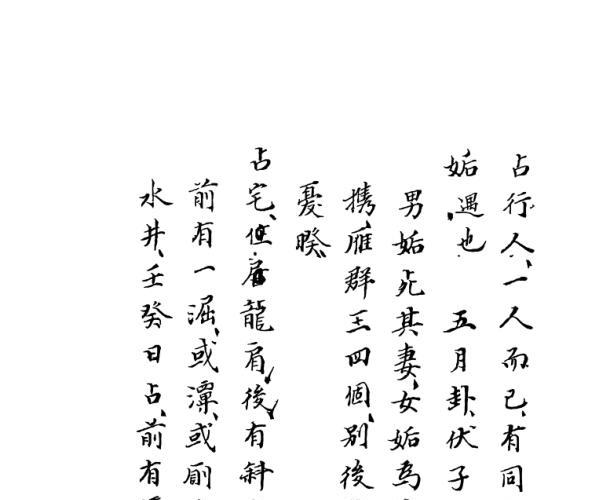 占行人、一人而已、有同
姤、遇也 五月卦、伏子
男姤死其妻、女姤為
携、雁群王四個、别後
憂睽
占宅、但肩龍肩、後、有斜
前有一淈、或潭、或厠
水井、壬癸日占、前有